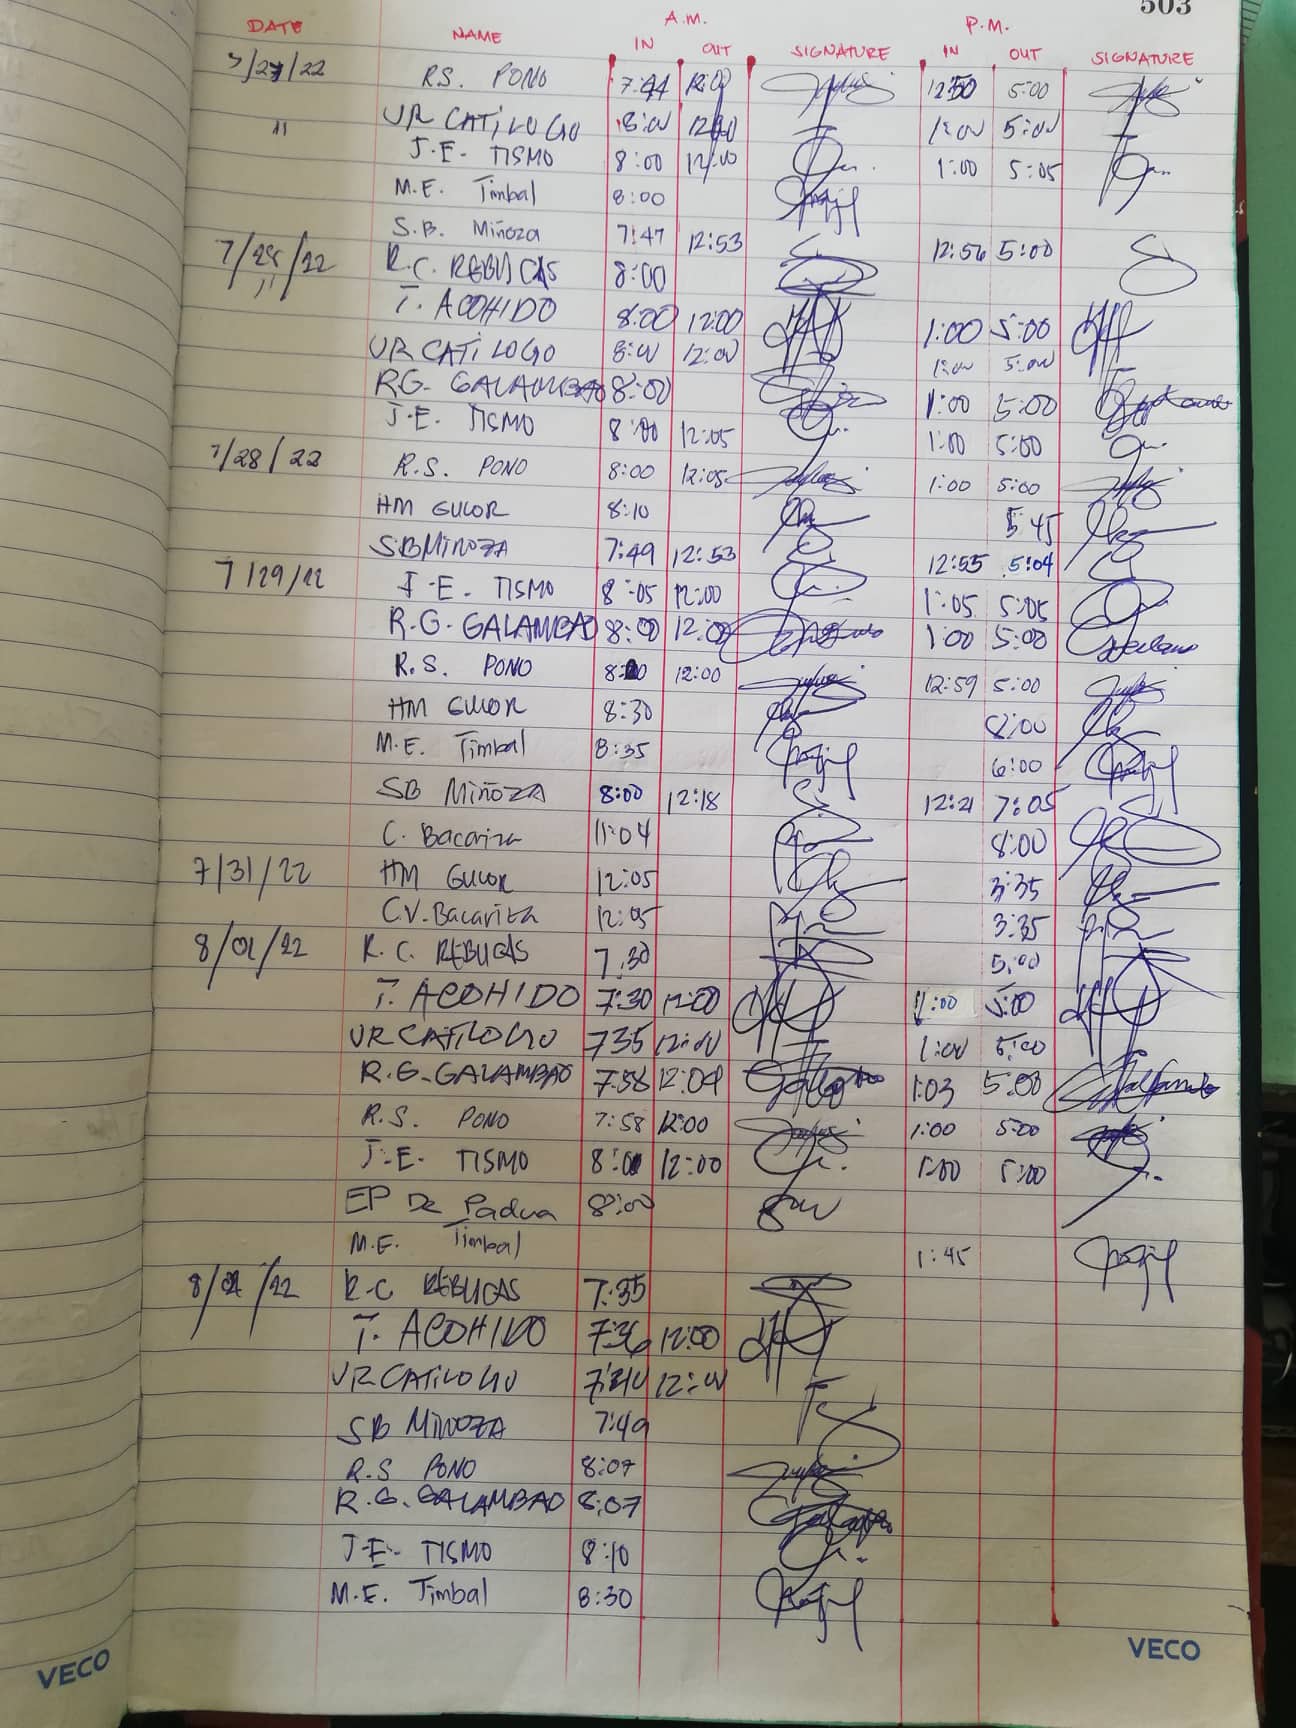 503
A.M. P.M.
DATE NAME IN OUT SIGNATURE IN OUT SIGNATURE
7/27/22 R.S. PONO 7:44 12:00 12:50 5:00
" UR CATILOGO 8:00 12:00 1:00 5:00
J.E. TISMO 8:00 12:00 1:00 5:05
M.E. Timbal 8:00
S.B. Miñoza 7:47 12:53 12:56 5:00
7/28/22 R.C. REBUCAS 8:00
" T. ACOHIDO 8:00 12:00 1:00 5:00
UR CATILOGO 8:00 12:00 1:00 5:00
RG. GALAMBAO 8:00 1:00 5:00
J.E. TISMO 8:00 12:05 1:00 5:00
7/28/22 R.S. PONO 8:00 12:05 1:00 5:00
HM GULOR 8:10 5:45
SB MINOZA 7:49 12:53 12:55 5:04
7/29/22 J.E. TISMO 8:05 12:00 1:05 5:05
R.G. GALAMBAO 8:00 12:00 1:00 5:00
R.S. PONO 8:00 12:00 12:59 5:00
HM GULOR 8:30 8:00
M.E. Timbal 8:35 6:00
SB MIÑOZA 8:00 12:18 12:21 7:05
C. Bacariza 11:04 8:00
7/31/22 HM GULOR 12:05 3:35
C.V. Bacariza 12:05 3:35
8/01/22 R.C. REBUCAS 7:30 5:00
T. ACOHIDO 7:30 12:00 1:00 5:00
UR CATILOGO 7:35 12:00 1:00 5:00
R.G. GALAMBAO 7:58 12:04 1:03 5:00
R.S. PONO 7:58 12:00 1:00 5:00
J.E. TISMO 8:00 12:00 1:00 5:00
EP De Padua 8:00
M.E. Timbal 1:45
8/02/22 R.C REBUCAS 7:35
T. ACOHIDO 7:36 12:00
UR CATILOGO 7:40 12:00
SB MINOZA 7:49
R.S PONO 8:07
R.G. GALAMBAO 8:07
J.E. TISMO 8:10
M.E. Timbal 8:30
VECO VECO